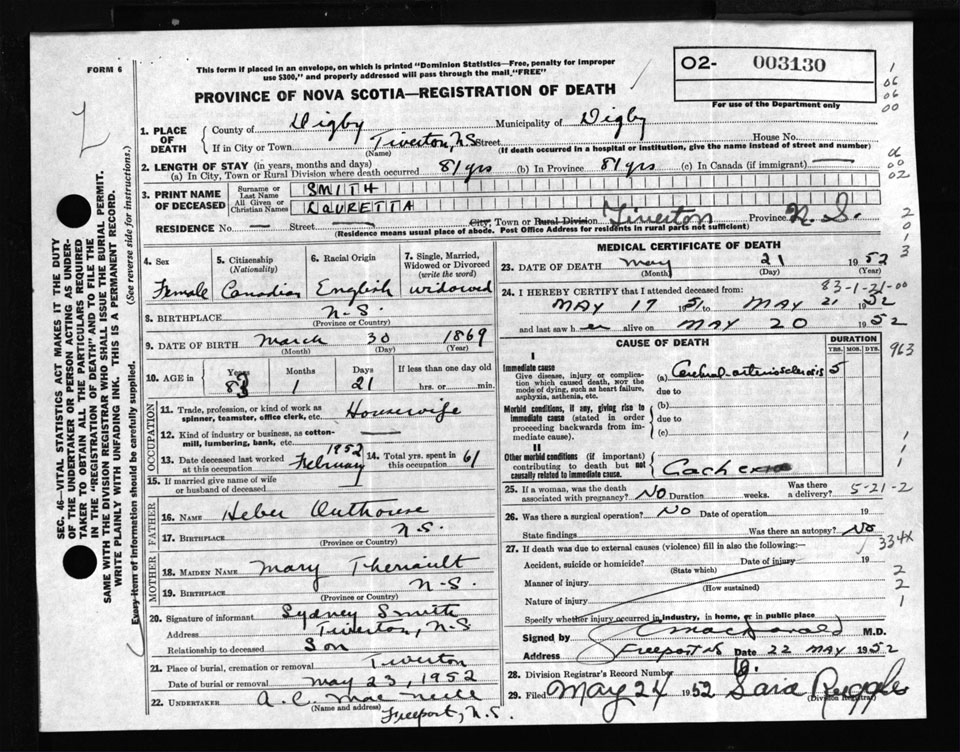 FORM 6
This form if placed in an envelope, on which is printed "Dominion Statistics—Free, penalty for improper
use $300," and properly addressed will pass through the mail "FREE"
O2- 003130
For use of the Department only
PROVINCE OF NOVA SCOTIA—REGISTRATION OF DEATH
1. PLACE OF DEATH
County of Digby Municipality of Digby
If in City or Town Tiverton, N.S. Street House No.
(Name) (If death occurred in a hospital or institution, give the name instead of street and number)
2. LENGTH OF STAY (in years, months and days)
(a) In City, Town or Rural Division where death occurred 81 yrs (b) In Province 81 yrs (c) In Canada (if immigrant) —
3. PRINT NAME OF DECEASED
Surname or Last Name SMITH
All Given or Christian Names LAURETTA
RESIDENCE No. — Street — City, Town or Rural Division Tiverton Province N.S.
(Residence means usual place of abode. Post Office Address for residents in rural parts not sufficient)
4. Sex Female
5. Citizenship (Nationality) Canadian
6. Racial Origin English
7. Single, Married, Widowed or Divorced (write the word) widowed
8. BIRTHPLACE N.S.
(Province or Country)
9. DATE OF BIRTH March 30 1869
(Month) (Day) (Year)
10. AGE in Years Months Days If less than one day old
83 1 21 hrs. or min.
OCCUPATION
11. Trade, profession, or kind of work as spinner, teamster, office clerk, etc. Housewife
12. Kind of industry or business, as cotton-mill, lumbering, bank, etc. —
13. Date deceased last worked at this occupation February 1952
14. Total yrs. spent in this occupation 61
15. If married give name of wife or husband of deceased
FATHER
16. NAME Heber Outhouse
17. BIRTHPLACE N.S.
(Province or Country)
MOTHER
18. MAIDEN NAME Mary Theriault
19. BIRTHPLACE N.S.
(Province or Country)
20. Signature of informant Sydney Smith
Address Tiverton, N.S
Relationship to deceased Son
21. Place of burial, cremation or removal Tiverton
Date of burial or removal May 23, 1952
22. UNDERTAKER A.C. MacNeill
(Name and address)
Freeport, N.S.
MEDICAL CERTIFICATE OF DEATH
23. DATE OF DEATH May 21 1952
(Month) (Day) (Year)
83-1-21-00
24. I HEREBY CERTIFY that I attended deceased from:
MAY 17 1951 MAY 21 1952
and last saw her alive on MAY 20 1952
CAUSE OF DEATH
DURATION
YRS. MOS. DYS.
I
Immediate cause
Give disease, injury or complication which caused death, not the mode of dying, such as heart failure, asphyxia, asthenia, etc.
(a) Cerebral arteriosclerosis 5
due to
Morbid conditions, if any, giving rise to immediate cause (stated in order proceeding backwards from immediate cause).
(b)
due to
(c)
II
Other morbid conditions (if important) contributing to death but not causally related to immediate cause.
963
25. If a woman, was the death associated with pregnancy? No Duration weeks. Was there a delivery? 5-21-2
26. Was there a surgical operation? No Date of operation 19
State findings Was there an autopsy? No
334X
27. If death was due to external causes (violence) fill in also the following:—
Accident, suicide or homicide? Date of injury 19
(State which)
Manner of injury
(How sustained)
Nature of injury
Specify whether injury occurred in industry, in home, or in public place
Signed by MacDonald M.D.
Address Freeport NS Date 22 MAY 1952
28. Division Registrar's Record Number
29. Filed May 24 1952 Sara Ruggles
(Division Registrar)
SEC. 46—VITAL STATISTICS ACT MAKES IT THE DUTY
OF THE UNDERTAKER OR PERSON ACTING AS UNDER-
TAKER TO OBTAIN ALL THE PARTICULARS REQUIRED
IN THE "REGISTRATION OF DEATH" AND TO FILE THE
SAME WITH THE DIVISION REGISTRAR WHO SHALL ISSUE THE BURIAL PERMIT.
WRITE PLAINLY WITH UNFADING INK. THIS IS A PERMANENT RECORD.
Every item of information should be carefully supplied. (See reverse side for instructions.)